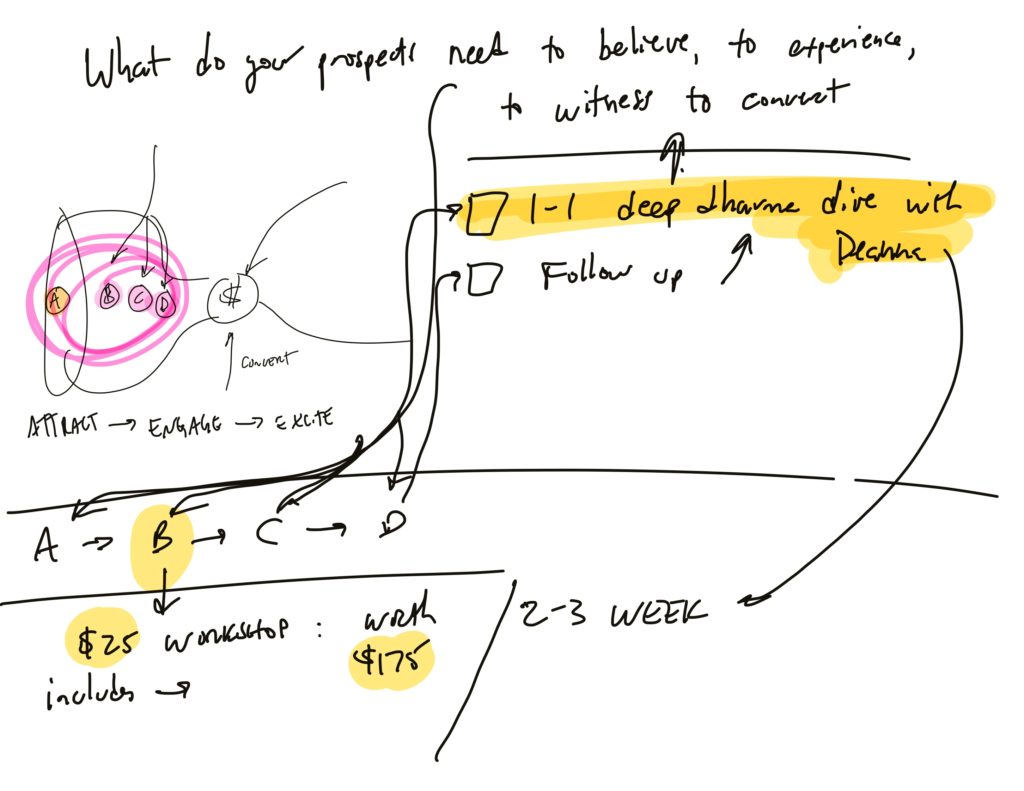 What do your prospects need to believe, to experience,
to witness to convert
1-1 deep dharma dive with
Deanna
Follow up
A B C D $
CONVERT
ATTRACT → ENGAGE → EXCITE
A → B → C → D
$25 WORKSHOP : worth
$175
includes →
2-3 WEEK